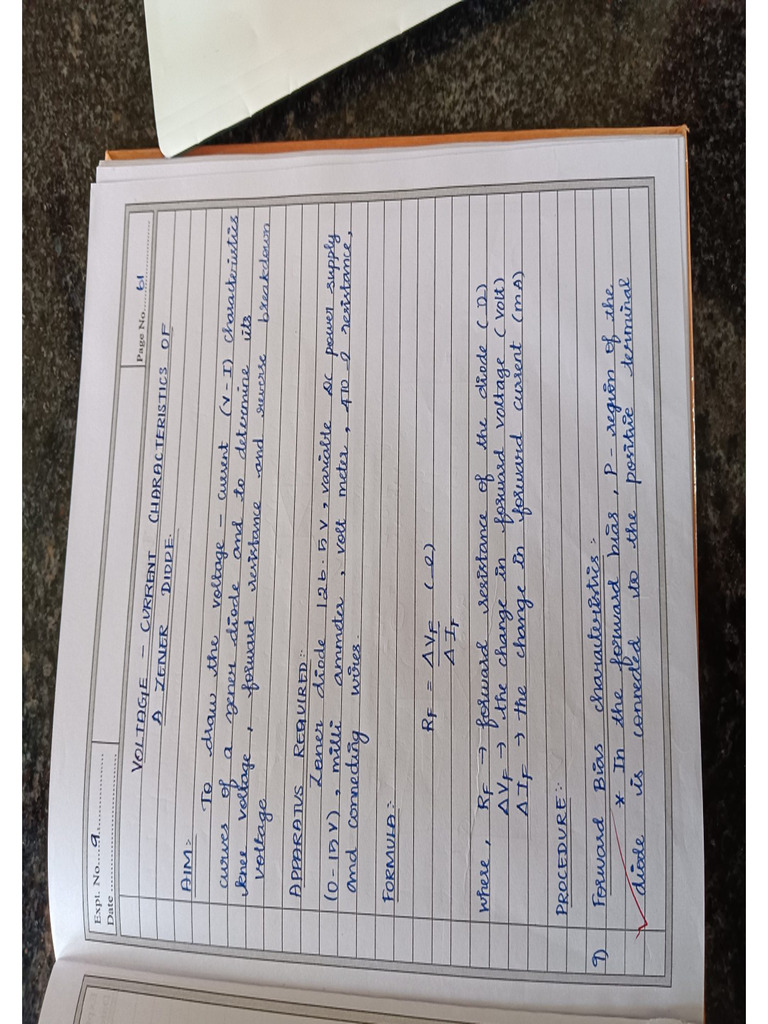 Expt. No. 9
Date
Page No. 61
VOLTAGE - CURRENT CHARACTERISTICS OF
A ZENER DIODE:
AIM:-
To draw the voltage - current (V-I) characteristics
curves of a zener diode and to determine its
knee voltage, forward resistance and reverse breakdown
voltage.
APPARATUS REQUIRED:-
Zener diode 1Z6.5V, variable DC power supply
(0-15V), milli ammeter, volt meter, 470 Ω resistance,
and connecting wires.
FORMULA:-
RF = ΔVF / ΔIF (Ω)
where, RF → forward resistance of the diode (Ω)
ΔVF → the change in forward voltage (volt)
ΔIF → the change in forward current (mA)
PROCEDURE:-
9) Forward Bias characteristics:-
* In the forward bias, P-region of the
diode is connected to the positive terminal